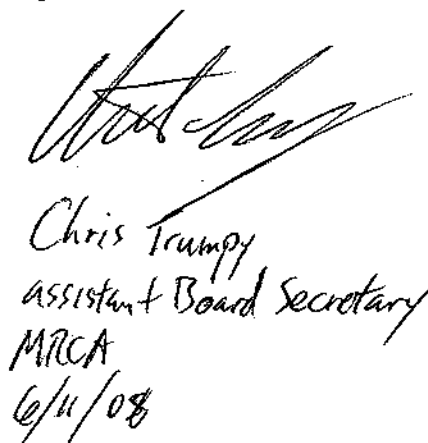 Chris Trumpy
assistant Board Secretary
MRCA
6/11/08